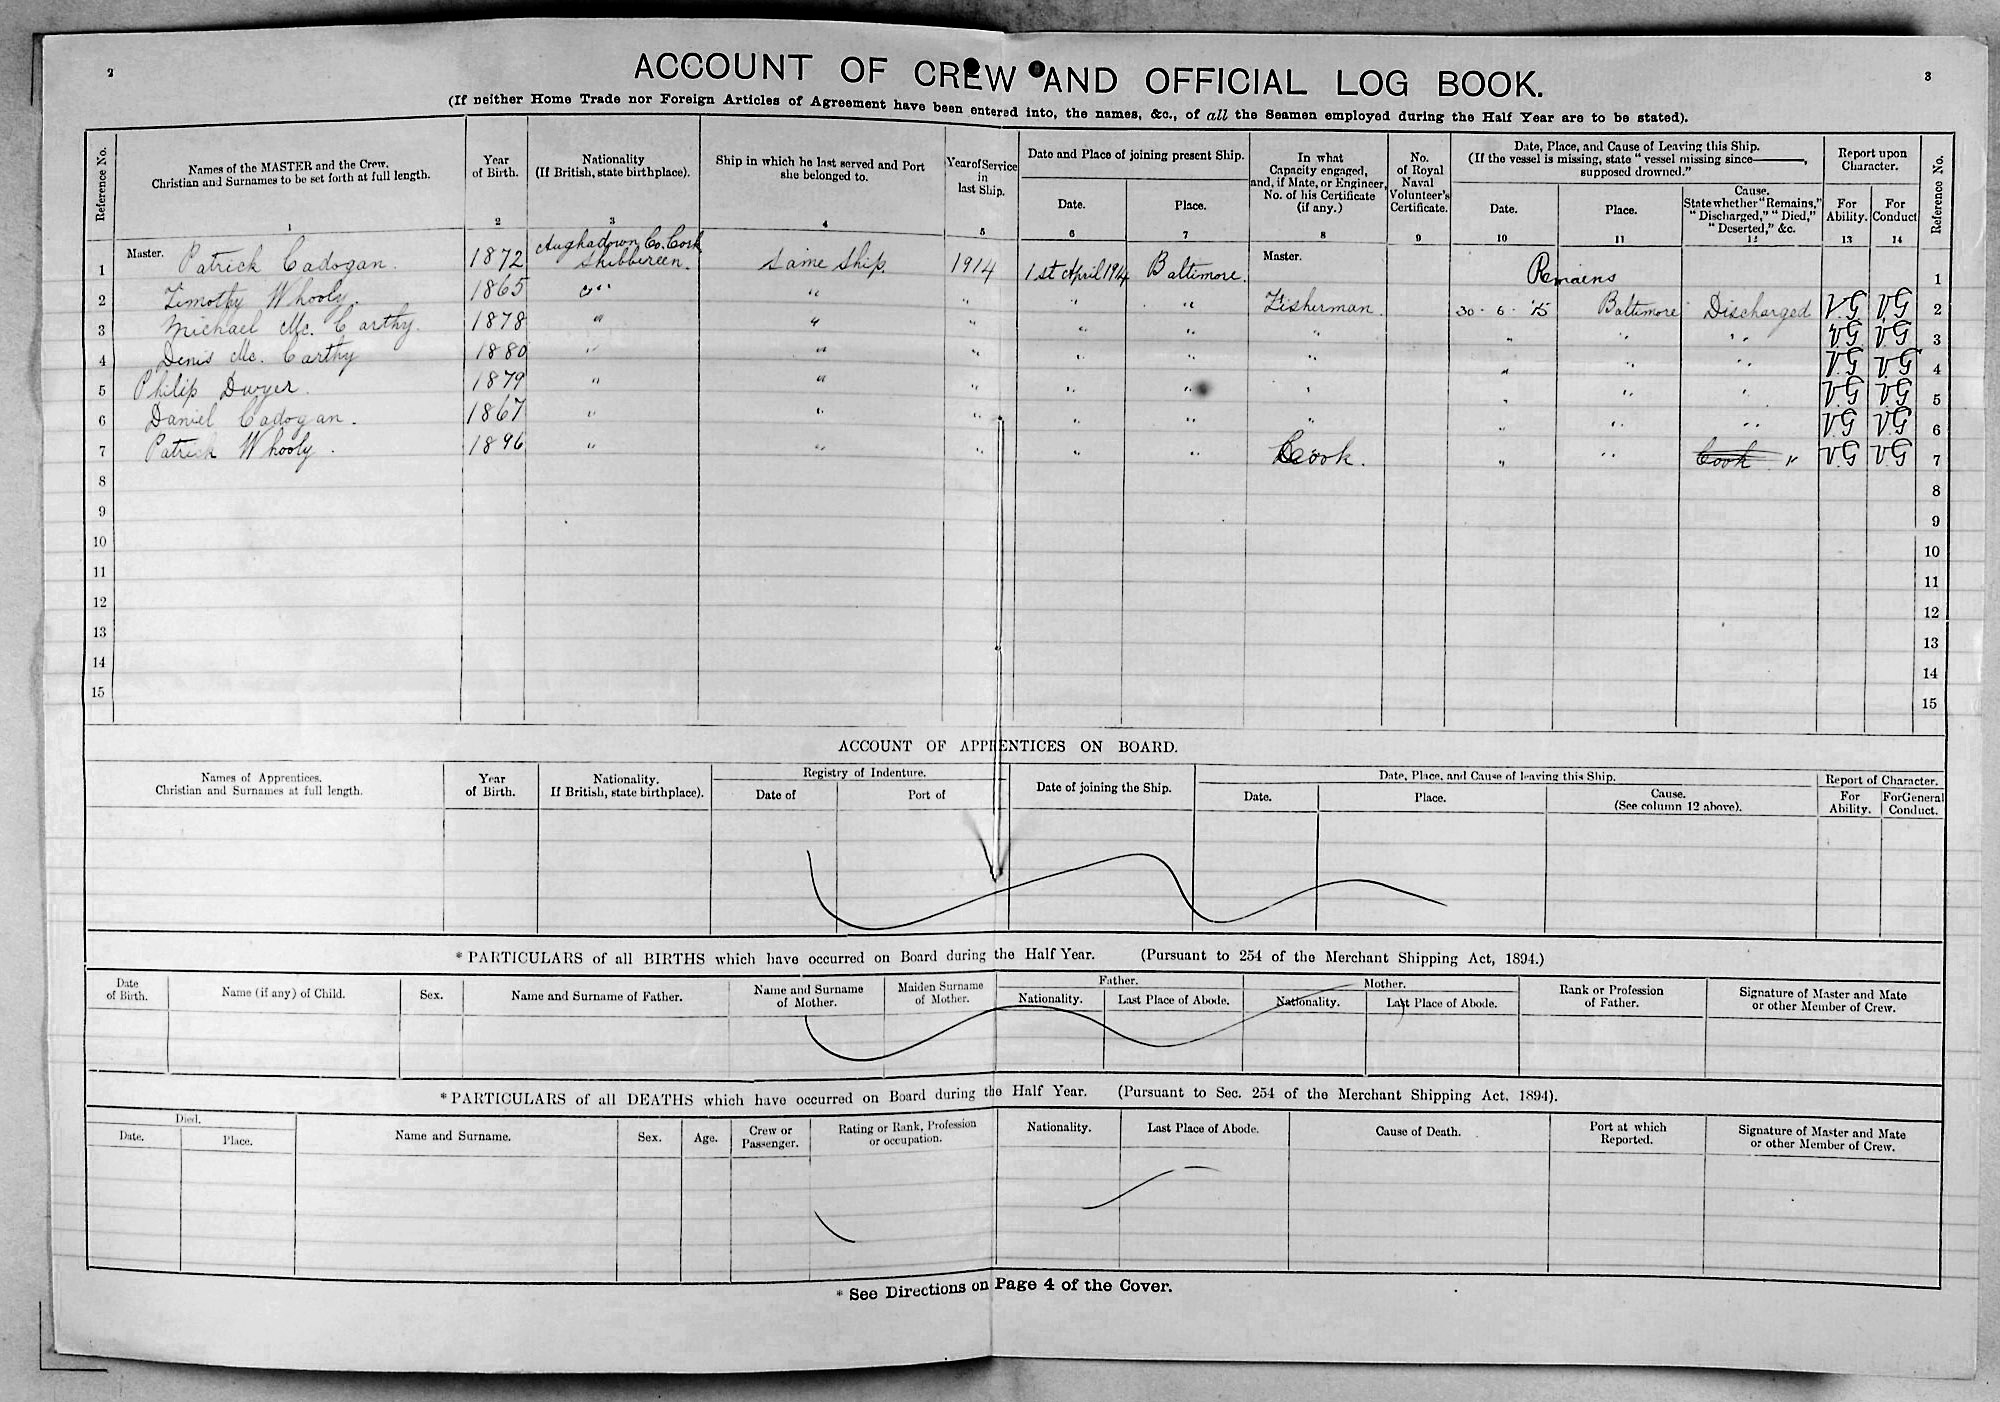 2
3
ACCOUNT OF CREW AND OFFICIAL LOG BOOK.
(If neither Home Trade nor Foreign Articles of Agreement have been entered into, the names, &c., of all the Seamen employed during the Half Year are to be stated).
Reference No. Names of the MASTER and the Crew. Christian and Surnames to be set forth at full length. Year of Birth. Nationality (If British, state birthplace). Ship in which he last served and Port she belonged to. Year of Service in last Ship. Date and Place of joining present Ship. Date. Place. In what Capacity engaged, and, if Mate, or Engineer, No. of his Certificate (if any.) No. of Royal Naval Volunteer's Certificate. Date, Place, and Cause of Leaving this Ship. (If the vessel is missing, state "vessel missing since———, supposed drowned." Date. Place. Cause. State whether "Remains," "Discharged," "Died," "Deserted," &c. Report upon Character. For Ability. For Conduct Reference No.
1 2 3 4 5 6 7 8 9 10 11 12 13 14
1 Master. Patrick Cadogan. 1872 Aughadown Co. Cork Skibbereen. Same Ship. 1914 1st April 1914 Baltimore. Master. Remains 1
2 Timothy Whooly. 1865 " " " " " Fisherman. 30 - 6 - 15 Baltimore Discharged V.G V.G 2
3 Michael Mc. Carthy. 1878 " " " " " " " " " V.G V.G 3
4 Denis Mc. Carthy 1880 " " " " " " " " " V.G V.G 4
5 Philip Dwyer. 1879 " " " " " " " " " V.G V.G 5
6 Daniel Cadogan. 1867 " " " " " " " " " V.G V.G 6
7 Patrick Whooly. 1896 " " " " " Cook. " " Cook " V.G V.G 7
8 8
9 9
10 10
11 11
12 12
13 13
14 14
15 15
ACCOUNT OF APPRENTICES ON BOARD.
Names of Apprentices. Christian and Surnames at full length. Year of Birth. Nationality. If British, state birthplace). Registry of Indenture. Date of Port of Date of joining the Ship. Date, Place, and Cause of leaving this Ship. Date. Place. Cause. (See column 12 above). Report of Character. For Ability. For General Conduct.
* PARTICULARS of all BIRTHS which have occurred on Board during the Half Year. (Pursuant to 254 of the Merchant Shipping Act, 1894.)
Date of Birth. Name (if any) of Child. Sex. Name and Surname of Father. Name and Surname of Mother. Maiden Surname of Mother. Father. Nationality. Last Place of Abode. Mother. Nationality. Last Place of Abode. Rank or Profession of Father. Signature of Master and Mate or other Member of Crew.
* PARTICULARS of all DEATHS which have occurred on Board during the Half Year. (Pursuant to Sec. 254 of the Merchant Shipping Act, 1894).
Died. Date. Place. Name and Surname. Sex. Age. Crew or Passenger. Rating or Rank, Profession or occupation. Nationality. Last Place of Abode. Cause of Death. Port at which Reported. Signature of Master and Mate or other Member of Crew.
* See Directions on Page 4 of the Cover.